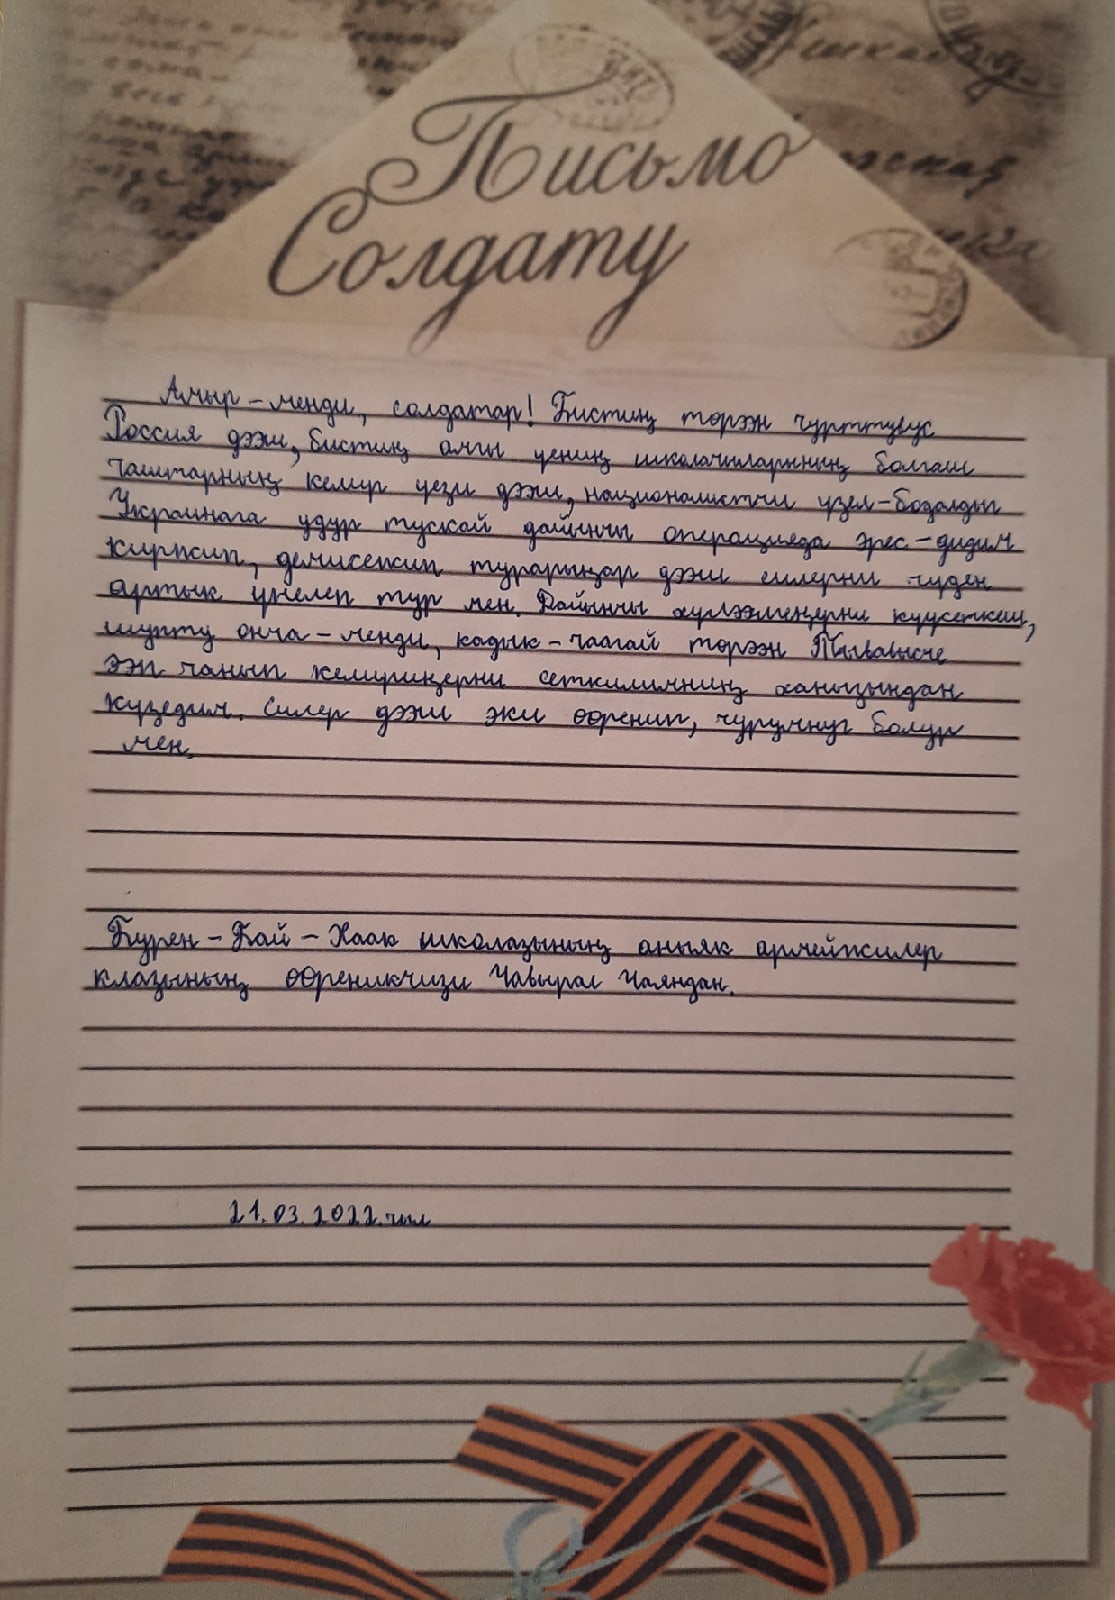 Письмо
Солдату
Амыр-менди, солдаттар! Бистиң төрээн чурттувус
Россия дээш, бистиң амгы үениң школачыларының болгаш
чаштарның келир үези дээш, национализтчи үзел-бодалдыг
Украинага удур тускай дайынчы операцияда эрес-дидим
киржип, демисежип турарыңар дээш силерни чүден
артык үнелеп тур мен. Дайынчы хүлээлгеңерни күүсеткеш,
шупту онча-менди, кадык-чаагай төрээн Тывавысче
ээп чанып келириңерни сеткилимниң ханызындан
күзедим. Силер дээш эки өөренип, чурумнуг болур
мен.
Бурен-Бай-Хаак школазының аныяк армейжилер
клазының өөреникчизи Чавырал Чаяндан.
21.03.2022 чыл